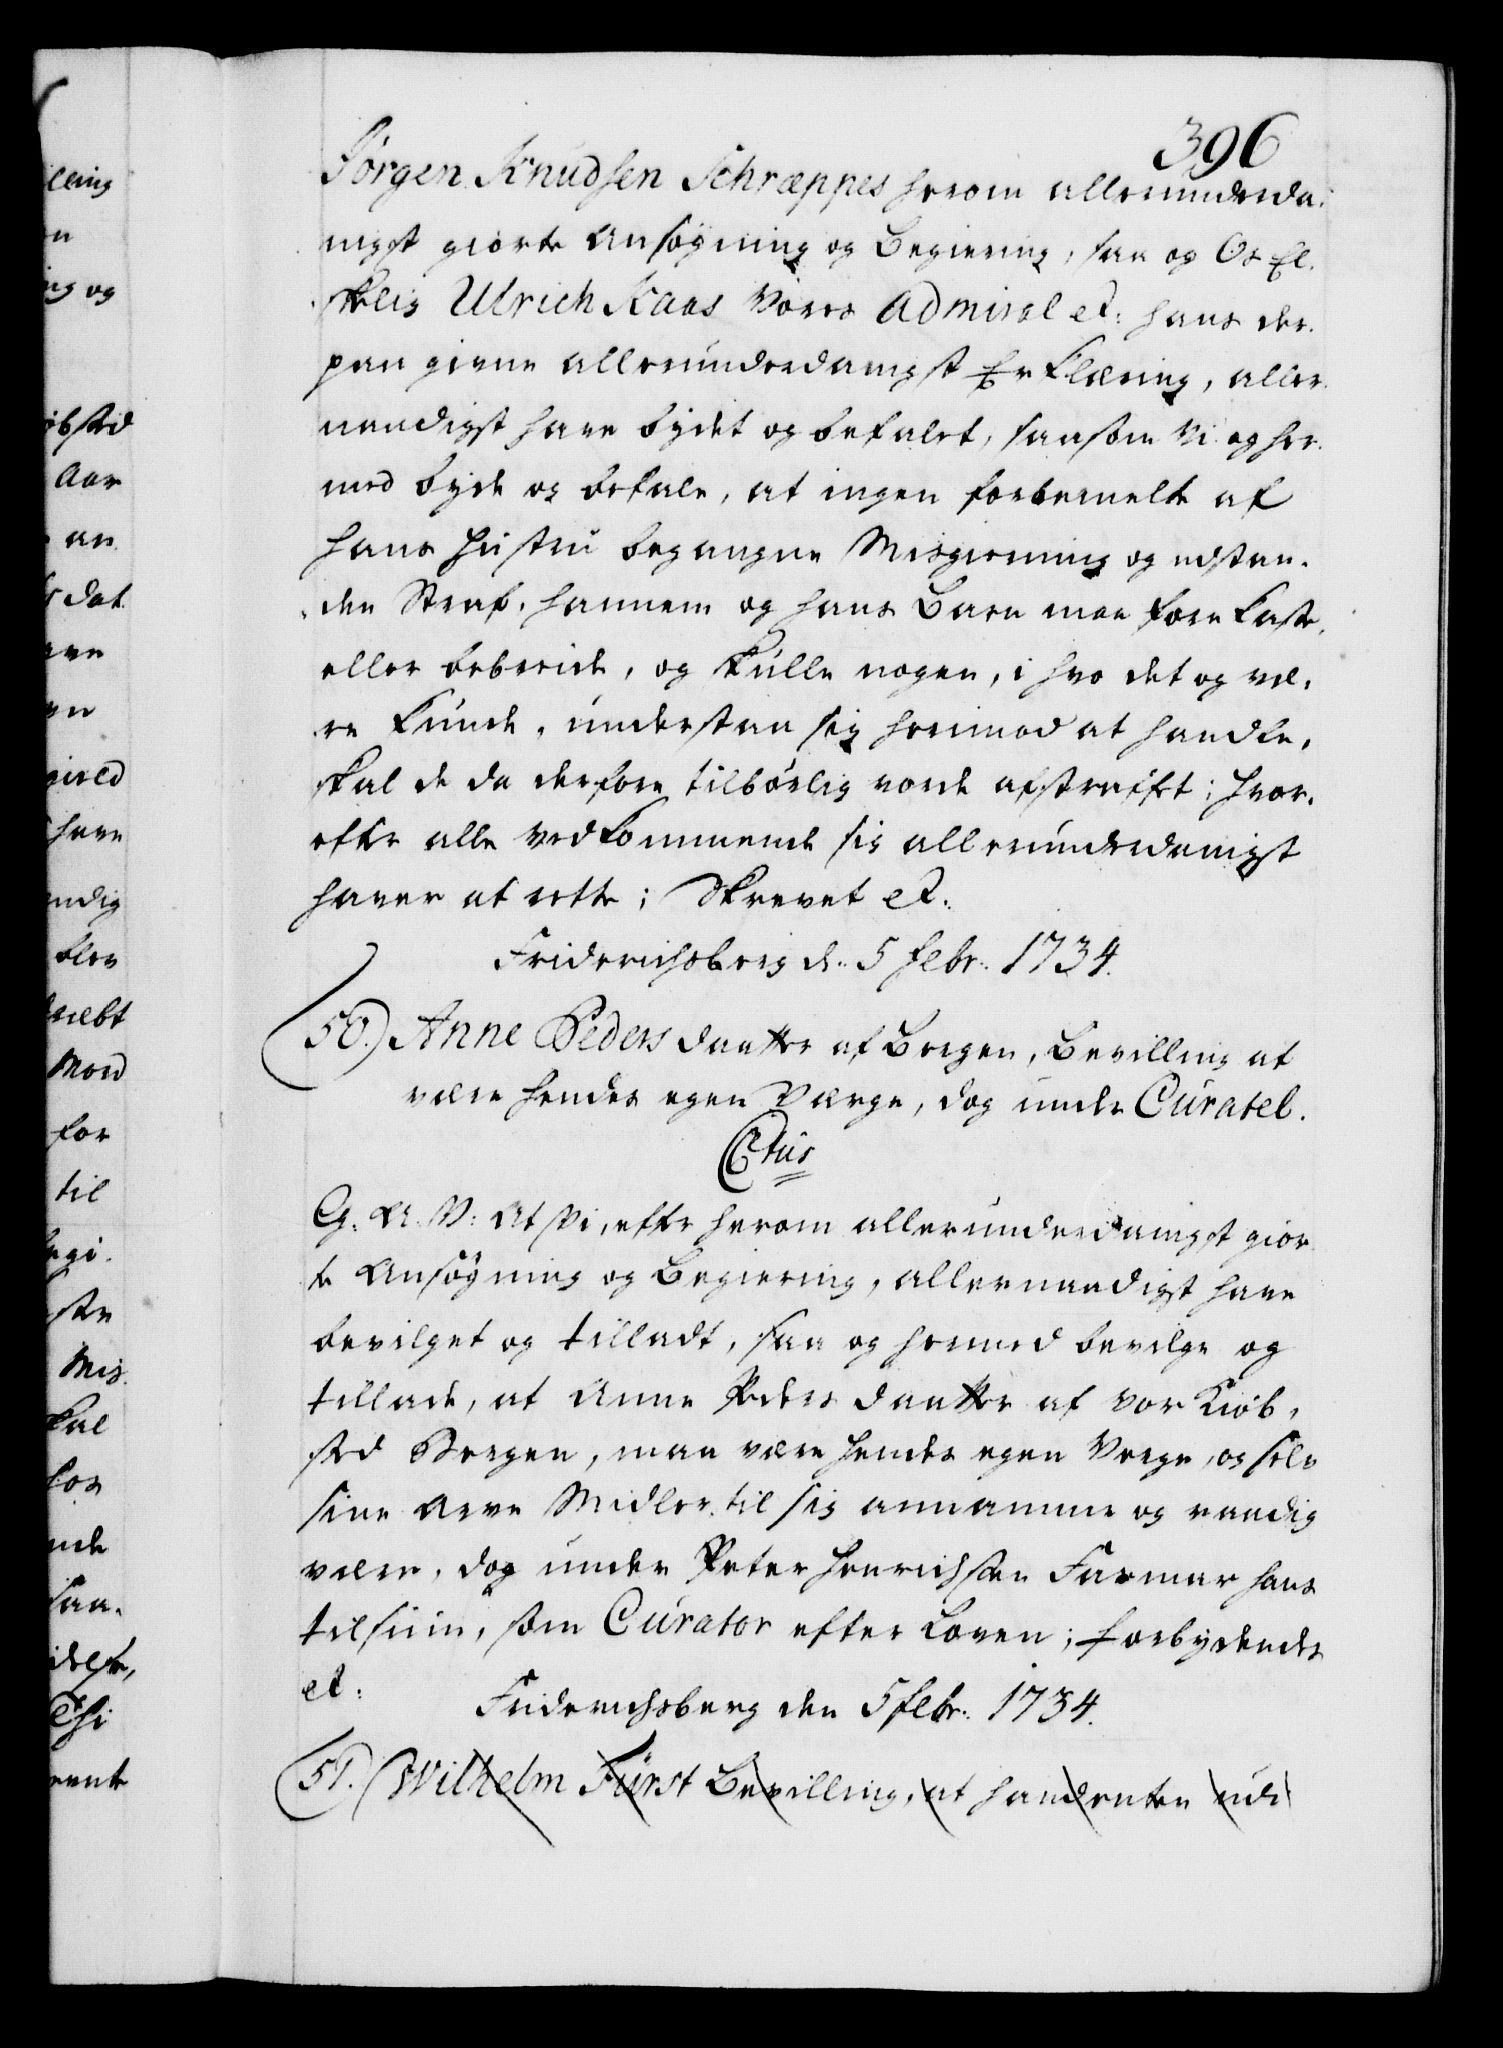 396
Jørgen Knudsen Schræppes herom allerunderda-
nigst giorte Ansøgning og Begiering, saa og Os El-
skelig Ulrich Kaas Vores Admiral etc: hans der-
paa givne allerunderdanigst Erklæring, aller-
naadigst have bydet og befalet, saasom Vi og her-
med byde og befale, at ingen forbemelte af
hans Hústrú begangne Misgierning og udstan-
den Straf, hannem og hans Barn maa forekaste,
eller bebreide, og skulle nogen, i hvo det og væ-
re kunde, understaa sig herimod at handle,
skal de da derfore tilbørlig vorde afstraffet; hvor-
efter alle Vedkommende sig allerunderdanigst
haver at rette; Skrevet etc.
Friderichsberg d. 5 Febr: 1734.
50.) Anne Peders daatter af Bergen, Bevilling at
være hendes egen Værge, dog under Curatel.
C6tus
G. A. V: At Vi, efter herom allerunderdanigst gior-
te Ansøgning og Begiering, allernaadigst have
bevilget og tilladt, saa og hermed bevilge og
tillade, at Anne Peders daatter af vor Kiøb-
sted Bergen, maa være hendes egen Verge, og selv
sine Arve Midler til sig annamme og raadig
være, dog under Peter Henrichsen Farmar hans
tilsiun, som Curator efter Loven; Forbydendes
etc:
Friderichsberg den 5 febr: 1734.
51.) Wilhelm Fürst Bevilling, at hand enten udi